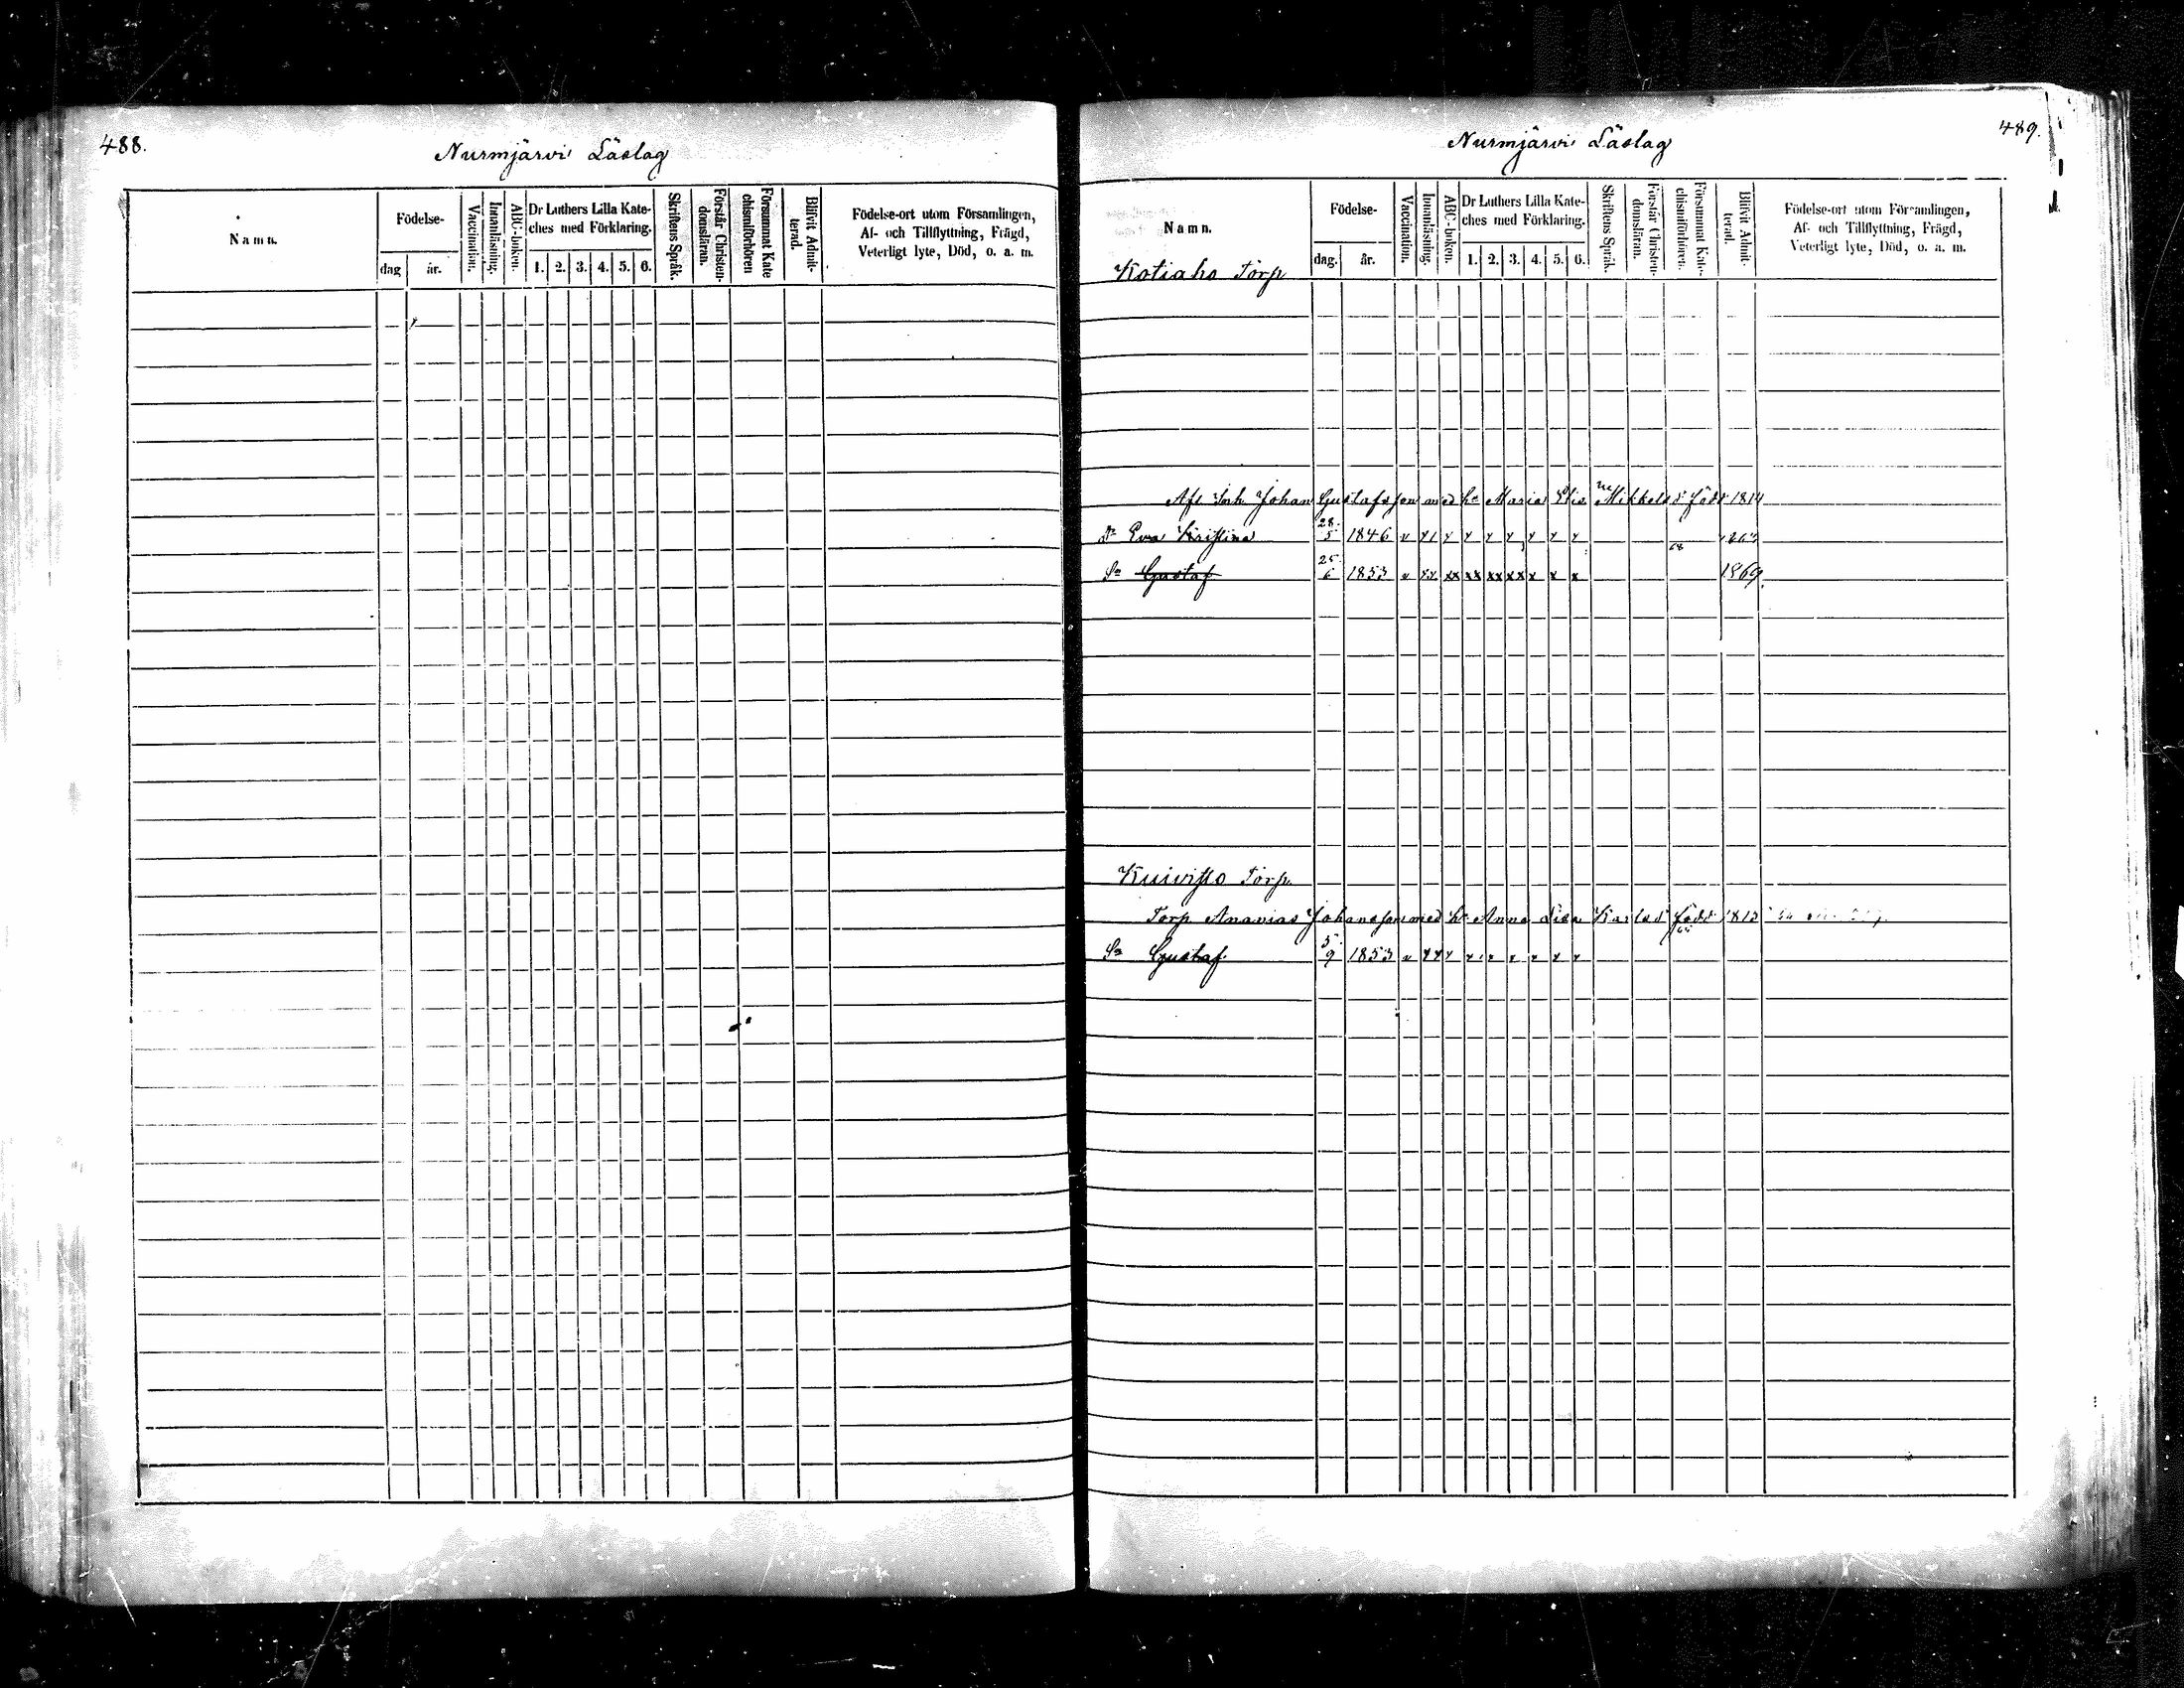 488.
Nurmjärvi Läslag
Namn.
Födelse-
dag
år.
Vaccination.
Innanläsning.
ABC-boken.
Dr Luthers Lilla Kate-
ches med Förklaring.
1. 2. 3. 4. 5. 6.
Skriftens Språk.
Förstår Christen-
domsläran.
Försummat Kate
chismiförhören
Blifvit Admit-
terad.
Födelse-ort utom Församlingen,
Af- och Tillflyttning, Frägd,
Veterligt lyte, Död, o. a. m.
489.
Nurmjärvi Läslag
Namn.
Födelse-
dag.
år.
Vaccination.
Innanläsning.
ABC-boken.
Dr Luthers Lilla Kate-
ches med Förklaring.
1. 2. 3. 4. 5. 6.
Skriftens Språk.
Förstår Christen-
domsläran.
Försummat Kate-
chismiförhören.
Blifvit Admit-
terad.
Födelse-ort utom Församlingen,
Af- och Tillflyttning, Frägd,
Veterligt lyte, Död, o. a. m.
Kotiaho Torp
Afl. Inh Johan Gustafsson med ho Maria Elis Mikkelsd född 1814
Dr Eva Kristina 28/5 1846
Sn Gustaf 25/6 1853 1869
Kuivisto Torp
Torp Ananias Johansson med ho Anna Lisa Karlsd född 1812
Sn Gustaf 5/9 1853